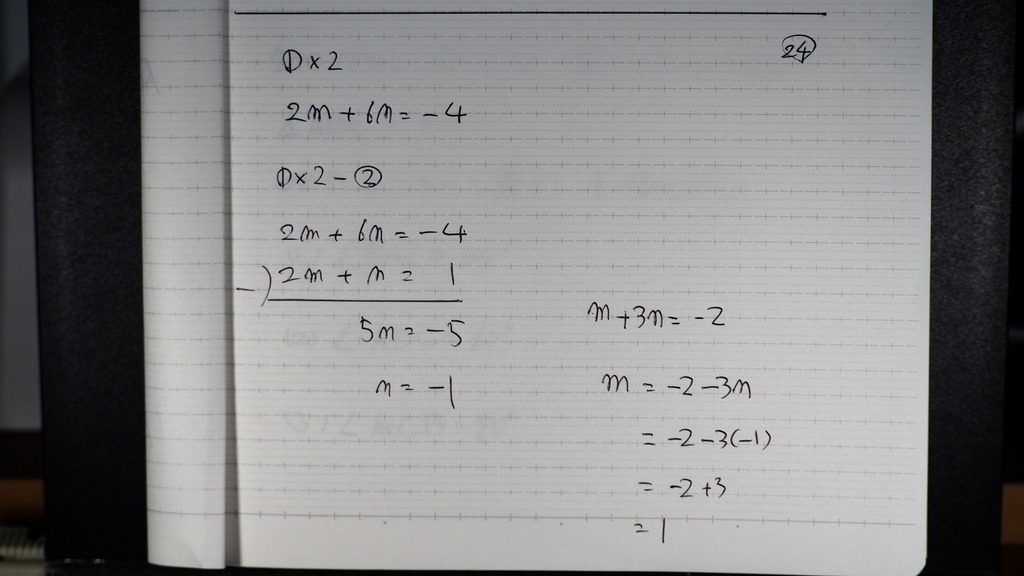 ㉔
①×2
2m + 6n = -4
①×2 - ②
2m + 6n = -4
-) 2m + n = 1
5n = -5
n = -1
m + 3n = -2
m = -2 - 3n
= -2 - 3(-1)
= -2 + 3
= 1